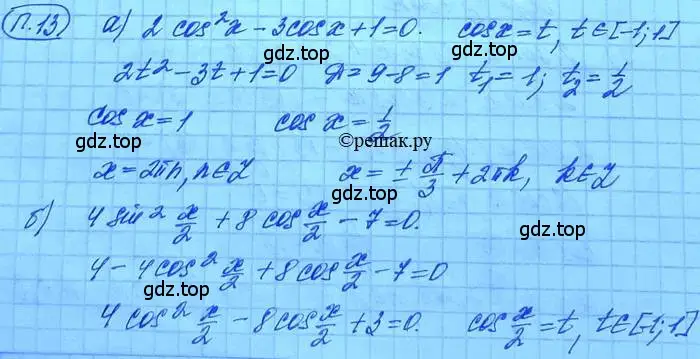 П.13. а) 2 cos²x - 3cosx + 1 = 0. cosx = t, t∈[-1; 1]
gdz.top
2t² - 3t + 1 = 0 Д = 9 - 8 = 1 t₁ = 1; t₂ = 1/2
cos x = 1 cos x = 1/2
gdz.top ©решак.ру
x = 2πn, n∈Z x = ± π/3 + 2πk, k∈Z
gdz.top
б) 4 sin² x/2 + 8 cos x/2 - 7 = 0.
gdz.top
4 - 4cos² x/2 + 8cos x/2 - 7 = 0
gdz.top
4 cos² x/2 - 8cos x/2 + 3 = 0. cos x/2 = t, t∈[-1; 1]
gdz.top